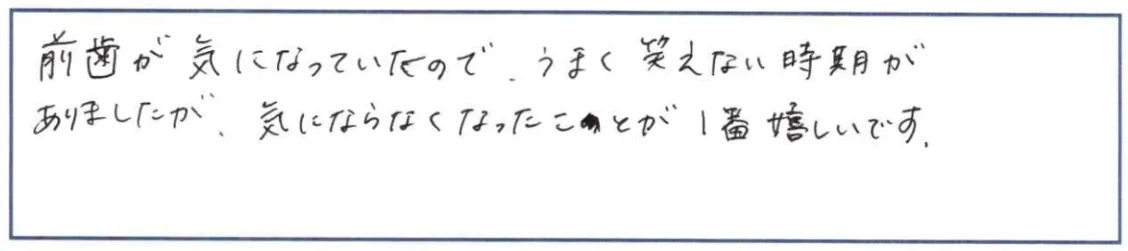 前歯が気になっていたので、うまく笑えない時期が
ありましたが、気にならなくなったことが1番嬉しいです。